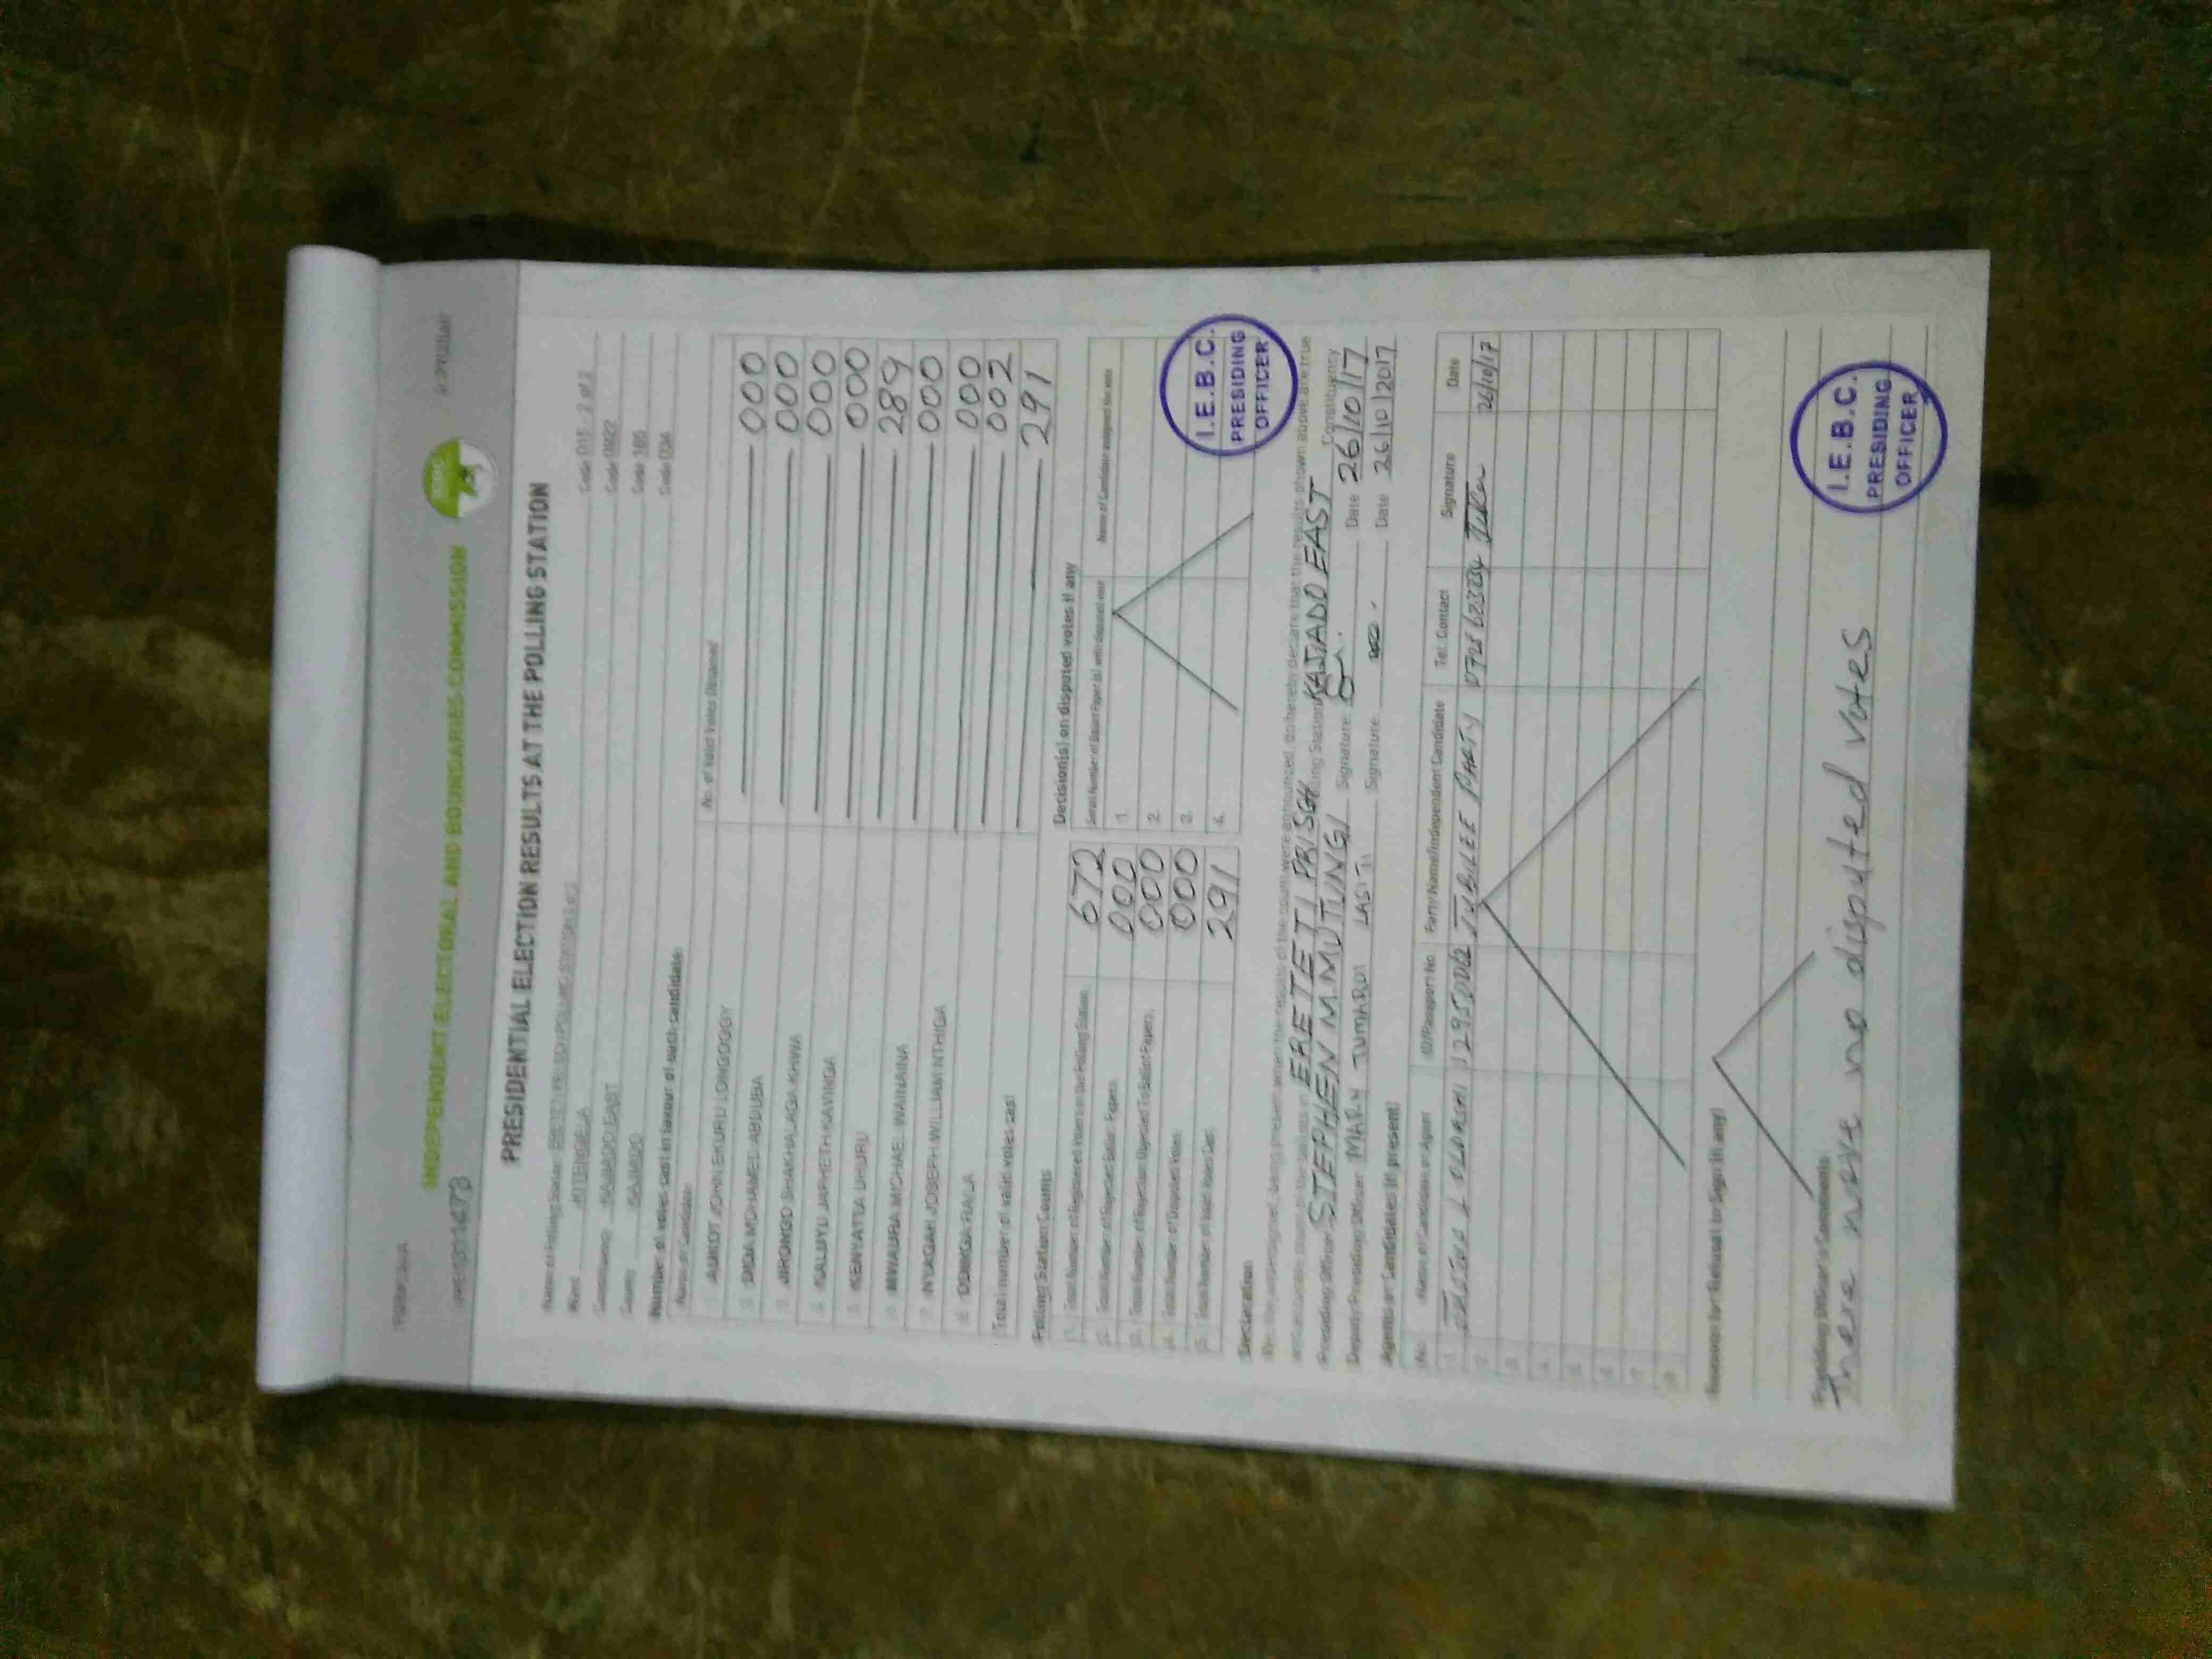 FORM 34A
INDEPENDENT ELECTORAL AND BOUNDARIES COMMISSION
PRESIDENTIAL ELECTION RESULTS AT THE POLLING STATION
Name of Polling Station Code 015 - 2 of 2
Ward KITENGELA Code 0922
Constituency KAJIADO EAST Code 185
County KAJIADO Code 034
Number of votes cast in favour of each candidate
Name of Candidate No. of Valid Votes Obtained
1. AUKOT JOHN EKURU LONGOGGY 000
2. DIDA MOHAMED ABDUBA 000
3. JIRONGO SHAKHALAGA KHWA 000
4. KALUYU JAPHETH KAVINGA 000
5. KENYATTA UHURU 289
6. MWAURA MICHAEL WAINAINA 000
7. NYAGAH JOSEPH WILLIAM NTHIGA 000
8. ODINGA RAILA 002
Total number of valid votes cast 291
Polling Station Counts
1. Total Number of Registered Voters in the Polling Station 672
2. Total Number of Rejected Ballot Papers 000
3. Total Number of Rejection Objected To Ballot Papers 000
4. Total Number of Disputed Votes 000
5. Total Number of Valid Votes Cast 291
Decision(s) on disputed votes if any
Serial Number of Ballot Paper(s) with disputed vote Name of Candidate assigned the vote
1.
2.
3.
4.
I.E.B.C.
PRESIDING
OFFICER
Declaration
We, the undersigned, being present when the results of the count were announced, do hereby declare that the results shown above are true
ERETETI Polling Station KAJIADO EAST Constituency
Presiding Officer STEPHEN M. MUTUNGI Signature Date 26/10/17
Deputy Presiding Officer MARY Signature Date 26/10/2017
Agents or Candidates (if present)
No. Name of Candidate or Agent ID/Passport No Party Name/Independent Candidate Tel. Contact Signature Date
1. JUBILEE PARTY 26/10/17
2.
3.
4.
5.
6.
7.
8.
Reasons for Refusal to Sign (if any)
Presiding Officer's Comments
There were no disputed votes
I.E.B.C.
PRESIDING
OFFICER